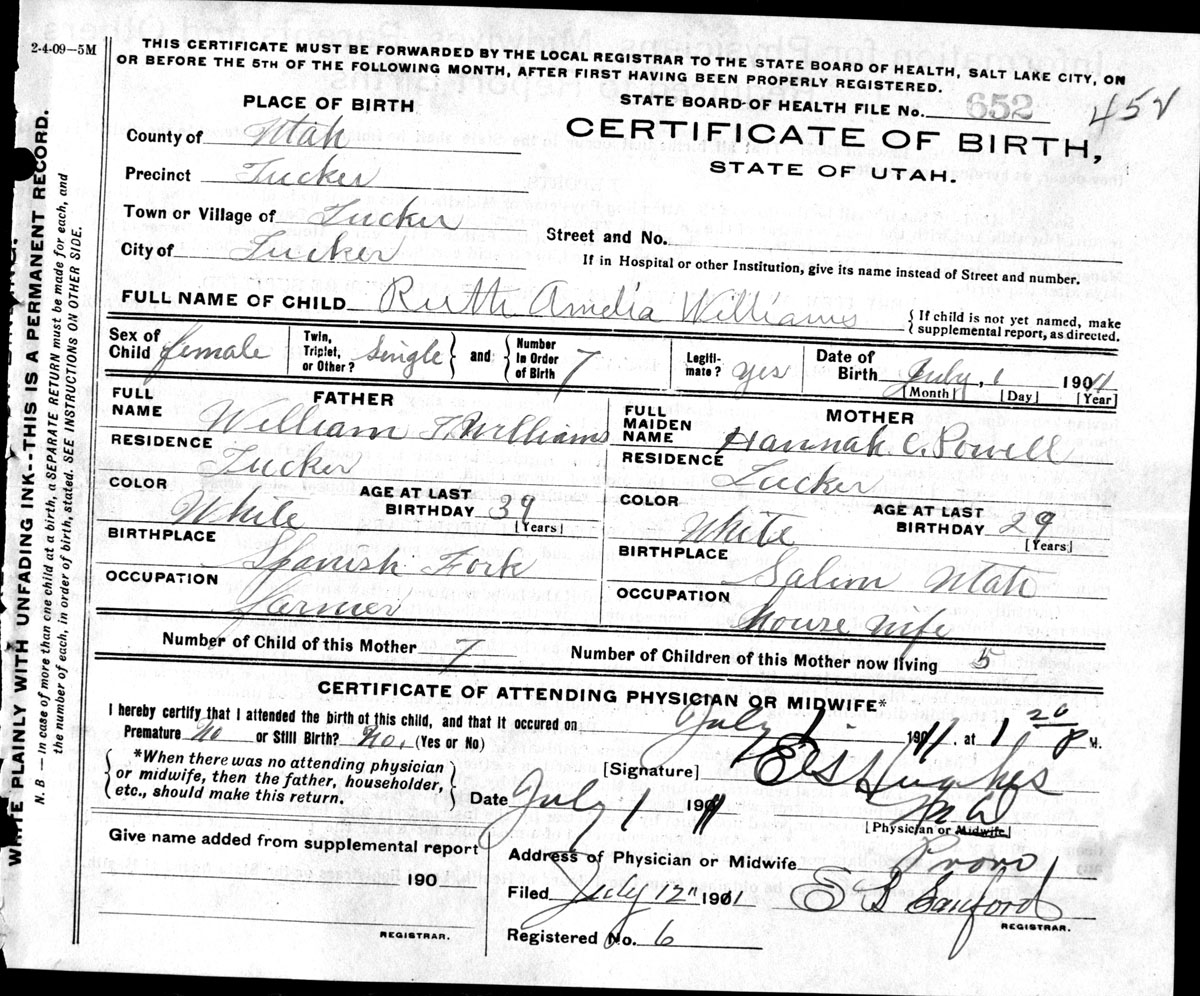 2-4-09—5M
THIS CERTIFICATE MUST BE FORWARDED BY THE LOCAL REGISTRAR TO THE STATE BOARD OF HEALTH, SALT LAKE CITY, ON
OR BEFORE THE 5TH OF THE FOLLOWING MONTH, AFTER FIRST HAVING BEEN PROPERLY REGISTERED.
STATE BOARD OF HEALTH FILE No. 652
452
PLACE OF BIRTH
CERTIFICATE OF BIRTH,
STATE OF UTAH.
County of Utah
Precinct Tucker
Town or Village of Tucker
Street and No.
City of Tucker
If in Hospital or other Institution, give its name instead of Street and number.
FULL NAME OF CHILD Ruth Amelia Williams
{ If child is not yet named, make
supplemental report, as directed.
Sex of Child female
Twin, Triplet, or Other? Single } and { Number in Order of Birth 7
Legitimate? yes
Date of Birth July, 1 1901 11
[Month] [Day] [Year]
FATHER
FULL NAME William T. Williams
RESIDENCE Tucker
COLOR White
AGE AT LAST BIRTHDAY 39
[Years]
BIRTHPLACE Spanish Fork
OCCUPATION farmer
MOTHER
FULL MAIDEN NAME Hannah C. Powell
RESIDENCE Tucker
COLOR White
AGE AT LAST BIRTHDAY 29
[Years]
BIRTHPLACE Salim Utah
OCCUPATION House Wife
Number of Child of this Mother 7 Number of Children of this Mother now living 5
CERTIFICATE OF ATTENDING PHYSICIAN OR MIDWIFE*
I hereby certify that I attended the birth of this child, and that it occured on July 1 1911, at 1 20 P M.
Premature No or Still Birth? No. (Yes or No)
{ *When there was no attending physician
or midwife, then the father, householder,
etc., should make this return. }
[Signature] E S Hughes
M D
[Physician or Midwife]
Date July 1 1911
Give name added from supplemental report
190
REGISTRAR.
Address of Physician or Midwife Provo
Filed July 12" 1911 E B Sanford
REGISTRAR.
Registered No. 6
WRITE PLAINLY WITH UNFADING INK--THIS IS A PERMANENT RECORD.
N. B — In case of more than one child at a birth, a SEPARATE RETURN must be made for each, and
the number of each, in order of birth, stated. SEE INSTRUCTIONS ON OTHER SIDE.